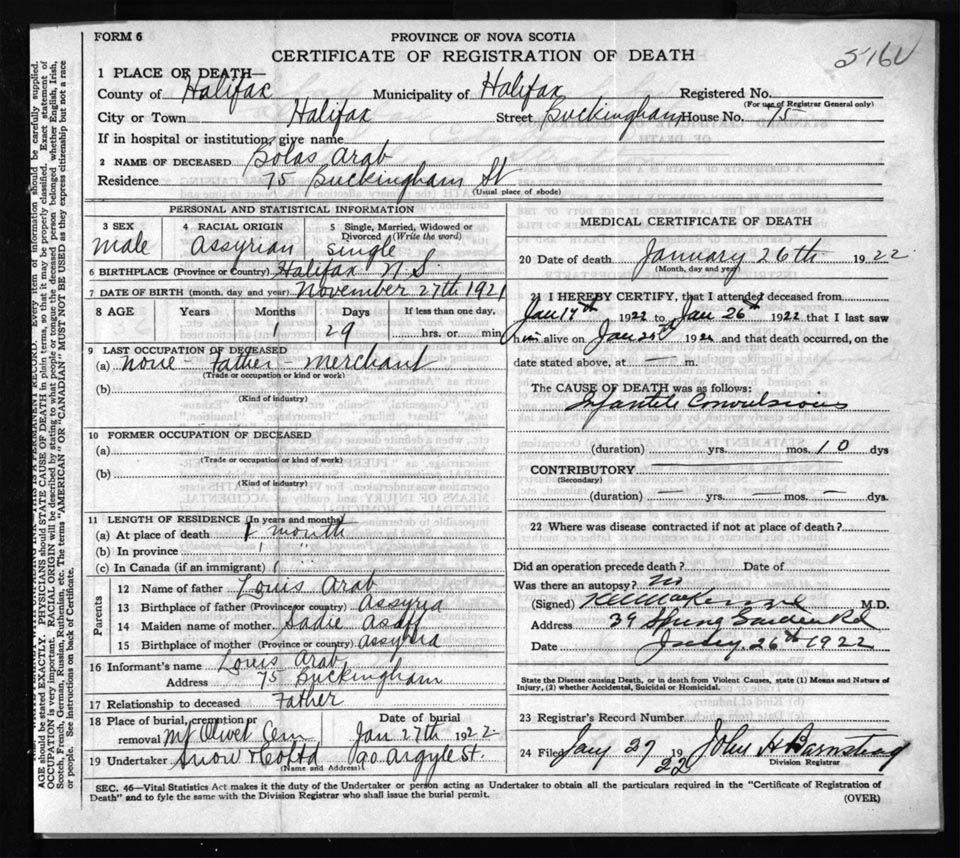 FORM 6
PROVINCE OF NOVA SCOTIA
CERTIFICATE OF REGISTRATION OF DEATH
1 PLACE OF DEATH—
County of Halifax Municipality of Halifax Registered No.
(For use of Registrar General only)
City or Town Halifax Street Buckingham House No. 75
If in hospital or institution, give name
2 NAME OF DECEASED Bolas Arab
Residence 75 Buckingham St
(Usual place of abode)
PERSONAL AND STATISTICAL INFORMATION
3 SEX 4 RACIAL ORIGIN 5 Single, Married, Widowed or Divorced (Write the word)
male Assyrian Single
6 BIRTHPLACE (Province or Country) Halifax N S.
7 DATE OF BIRTH (month, day and year) November 27th 1921
8 AGE Years Months Days If less than one day,
1 29 hrs. or min.
9 LAST OCCUPATION OF DECEASED
(a) none Father Merchant
(Trade or occupation or kind or work)
(b)
(Kind of industry)
10 FORMER OCCUPATION OF DECEASED
(a)
(Trade or occupation or kind of work)
(b)
(Kind of industry)
11 LENGTH OF RESIDENCE (In years and months)
(a) At place of death 1 month
(b) In province
(c) In Canada (if an immigrant)
Parents
12 Name of father Louis Arab
13 Birthplace of father (Province or country) Assyria
14 Maiden name of mother Sadie Asaff
15 Birthplace of mother (Province or country) Assyria
16 Informant's name Louis Arab
Address 75 Buckingham
17 Relationship to deceased Father
18 Place of burial, cremation or removal Mt Olivet Cem Date of burial Jan 27th 1922
19 Undertaker Snow & Co Ltd 90 Argyle St.
(Name and Address)
MEDICAL CERTIFICATE OF DEATH
20 Date of death January 26th 1922
(Month, day and year)
21 I HEREBY CERTIFY, that I attended deceased from
Jan 17th 1922 to Jan 26th 1922 that I last saw
him alive on Jan 1922 and that death occurred, on the
date stated above, at — m.
The CAUSE OF DEATH was as follows:
Infantile Convulsions
(duration) yrs. mos. 10 dys
CONTRIBUTORY
(Secondary)
(duration) — yrs. — mos. — dys.
22 Where was disease contracted if not at place of death?
Did an operation precede death? Date of
Was there an autopsy? no
(Signed) M.D.
Address 39 Spring Garden Rd
Date Jany. 26th 1922
State the Disease causing Death, or in death from Violent Causes, state (1) Means and Nature of
Injury, (2) whether Accidental, Suicidal or Homicidal.
23 Registrar's Record Number
24 Filed Jany 27 1922 John H Barnstead
Division Registrar
SEC. 46—Vital Statistics Act makes it the duty of the Undertaker or person acting as Undertaker to obtain all the particulars required in the "Certificate of Registration of
Death" and to fyle the same with the Division Registrar who shall issue the burial permit.
(OVER)
PERMANENT RECORD. Every item of information should be carefully supplied.
AGE should be stated EXACTLY. PHYSICIANS should STATE CAUSE OF DEATH in plain terms, so that it may be properly classified. Exact statement of
OCCUPATION is very important. RACIAL ORIGIN will be described by stating to what people or tongue the deceased person belonged whether English, Irish,
Scotch, French, German, Russian, Ruthenian, etc. The terms "AMERICAN" OR "CANADIAN" MUST NOT BE USED as they express citizenship but not a race
or people. See instructions on back of Certificate.